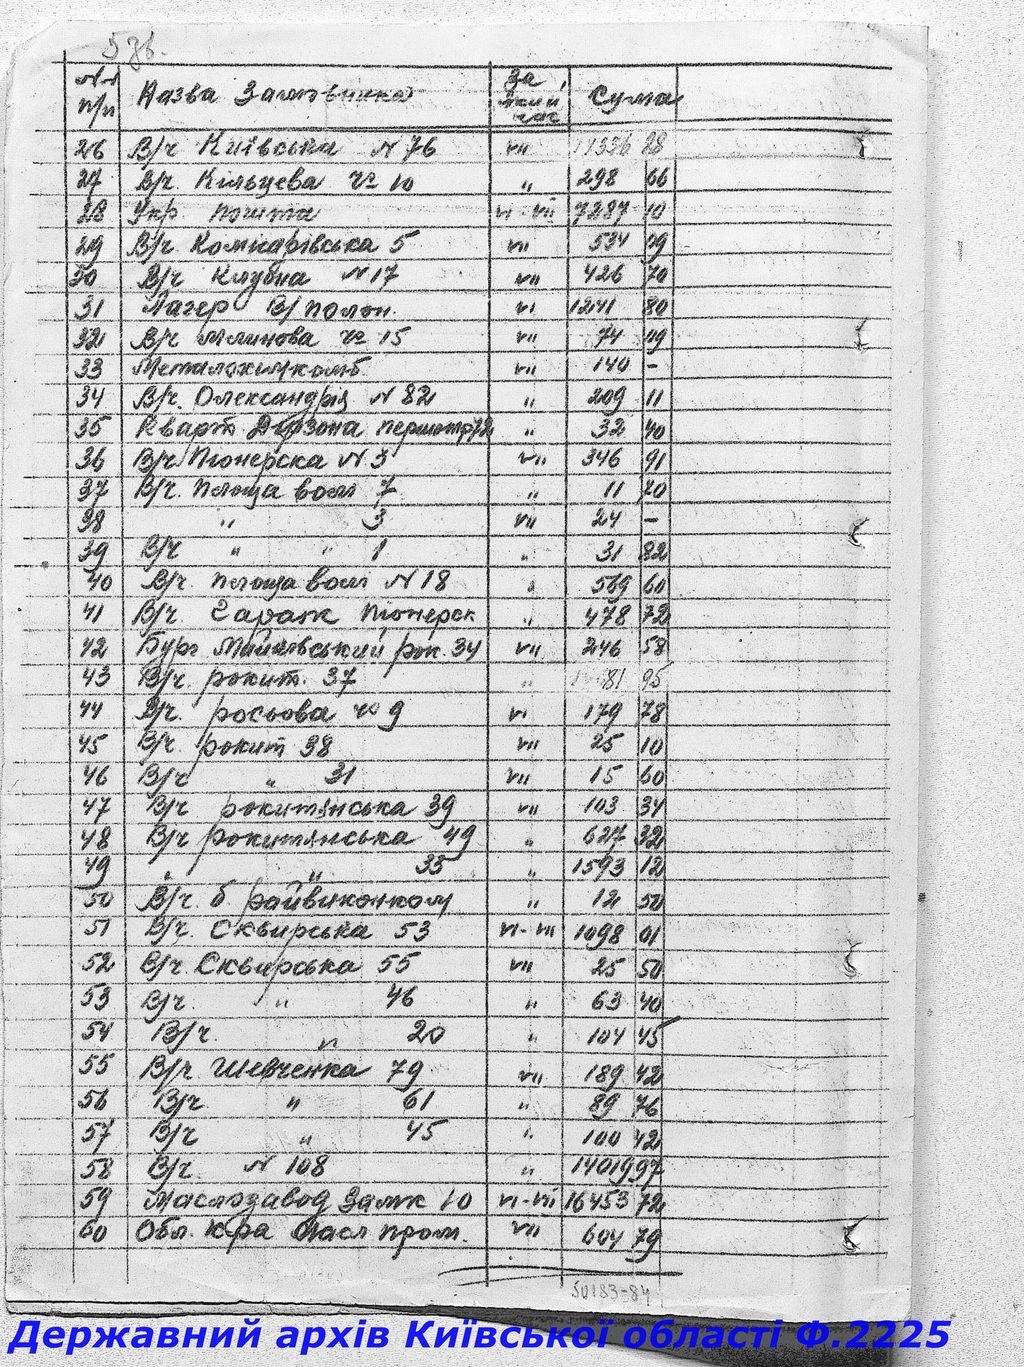 №№ п/п Назва Замовника За який час Сума
26 В/ч Київська N 76 VII 11336 28
27 В/ч. Кільцева № 10 " 298 66
28 Укр. пошта VI-VII 7287 10
29 В/ч. Комнарівська 5 VII 534 09
30 В/ч Клубна N 17 VII 426 70
31 Лагер В/полон. VI 1241 80
32 В/ч Млинова № 15 VII 74 09
33 VII 140 -
34 В/ч. Олександрія N 82 " 209 11
35 Кварт. " 32 40
36 В/ч Піонерска N 3 VII 346 91
37 В/ч. Площа волі 7 " 11 70
38 " 3 VII 24 -
39 В/ч " " 1 " 31 82
40 В/ч. площа волі N 18 " 569 60
41 В/ч Гараж Піонерск " 478 72
42 рок. 34 VII 246 58
43 В/ч. рокит. 37 " 81 95
44 В/ч. росьова № 9 VI 179 78
45 В/ч. рокит 38 VII 25 10
46 В/ч " 31 VII 15 60
47 В/ч рокитянська 39 VII 103 34
48 В/ч рокитянська 49 " 627 32
49 " " 33 " 1593 12
50 В/ч. б. райвиконком " 12 50
51 В/ч. Сквирська 53 VI-VII 1098 01
52 В/ч. Сквирська 55 VII 25 50
53 В/ч. " 46 " 63 40
54 В/ч. " 20 " 104 45
55 В/ч Шевченка 79 VII 189 42
56 В/ч " 61 " 89 76
57 В/ч " 45 " 100 42
58 В/ч. N 108 " 14019 97
59 Маслозавод Замк 10 VI-VII 16453 72
60 Обл. К-ра Масл пром. VII 604 79
50183-84
Державний архів Київської області Ф.2225